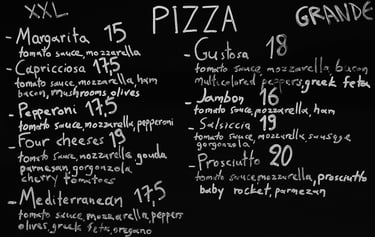 XXL PIZZA GRANDE
- Margarita 15
tomato sauce, mozzarella
- Capricciosa 17,5
tomato sauce, mozzarella, ham
bacon, mushrooms, olives
- Pepperoni 17,5
tomato sauce, mozzarella, pepperoni
- Four cheeses 19
tomato sauce, mozzarella, gouda
parmesan, gorgonzola
cherry tomatoes
- Mediterranean 17,5
tomato sauce, mozzarella, peppers
olives, greek feta, oregano
- Gustosa 18
tomato sauce, mozzarella, bacon
multicolored peppers, greek feta
- Jambon 16
tomato sauce, mozzarella, ham
- Salsiccia 19
tomato sauce, mozzarella, sausage
gorgonzola
- Prosciutto 20
tomato sauce, mozzarella, prosciutto
baby rocket, parmezan